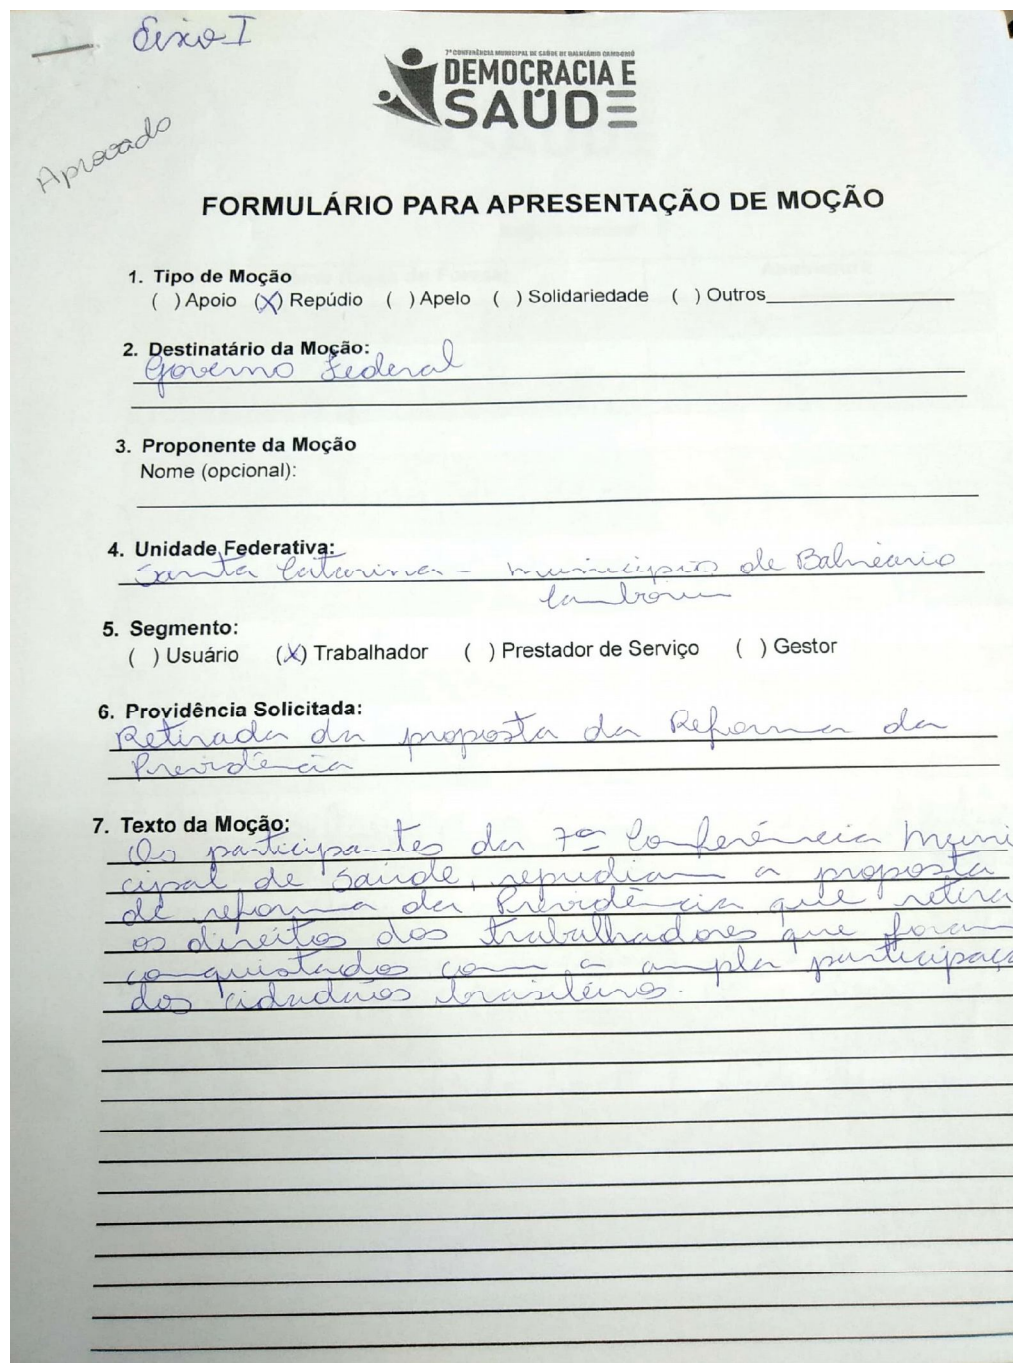 Eixo I
7ª CONFERÊNCIA MUNICIPAL DE SAÚDE DE BALNEÁRIO CAMBORIÚ
DEMOCRACIA E
SAÚDE
Aprovado
FORMULÁRIO PARA APRESENTAÇÃO DE MOÇÃO
1. Tipo de Moção
( ) Apoio (X) Repúdio ( ) Apelo ( ) Solidariedade ( ) Outros
2. Destinatário da Moção:
Governo Federal
3. Proponente da Moção
Nome (opcional):
4. Unidade Federativa:
Santa Catarina - município de Balneário
Camboriu
5. Segmento:
( ) Usuário (X) Trabalhador ( ) Prestador de Serviço ( ) Gestor
6. Providência Solicitada:
Retirada da proposta da Reforma da
Previdência
7. Texto da Moção:
Os participantes da 7ª Conferência Muni
cipal de Saúde, repudiam a proposta
de reforma da Previdência que retira
os direitos dos trabalhadores que foram
conquistados com a ampla participaçã
dos cidadãos brasileiros.